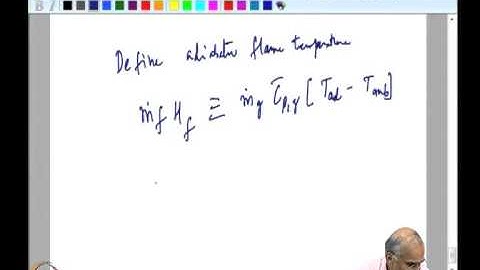 Define adiabatic flame temperature
ṁ_f H_f ≡ ṁ_g C̄_{p,g} [T_ad - T_amb]